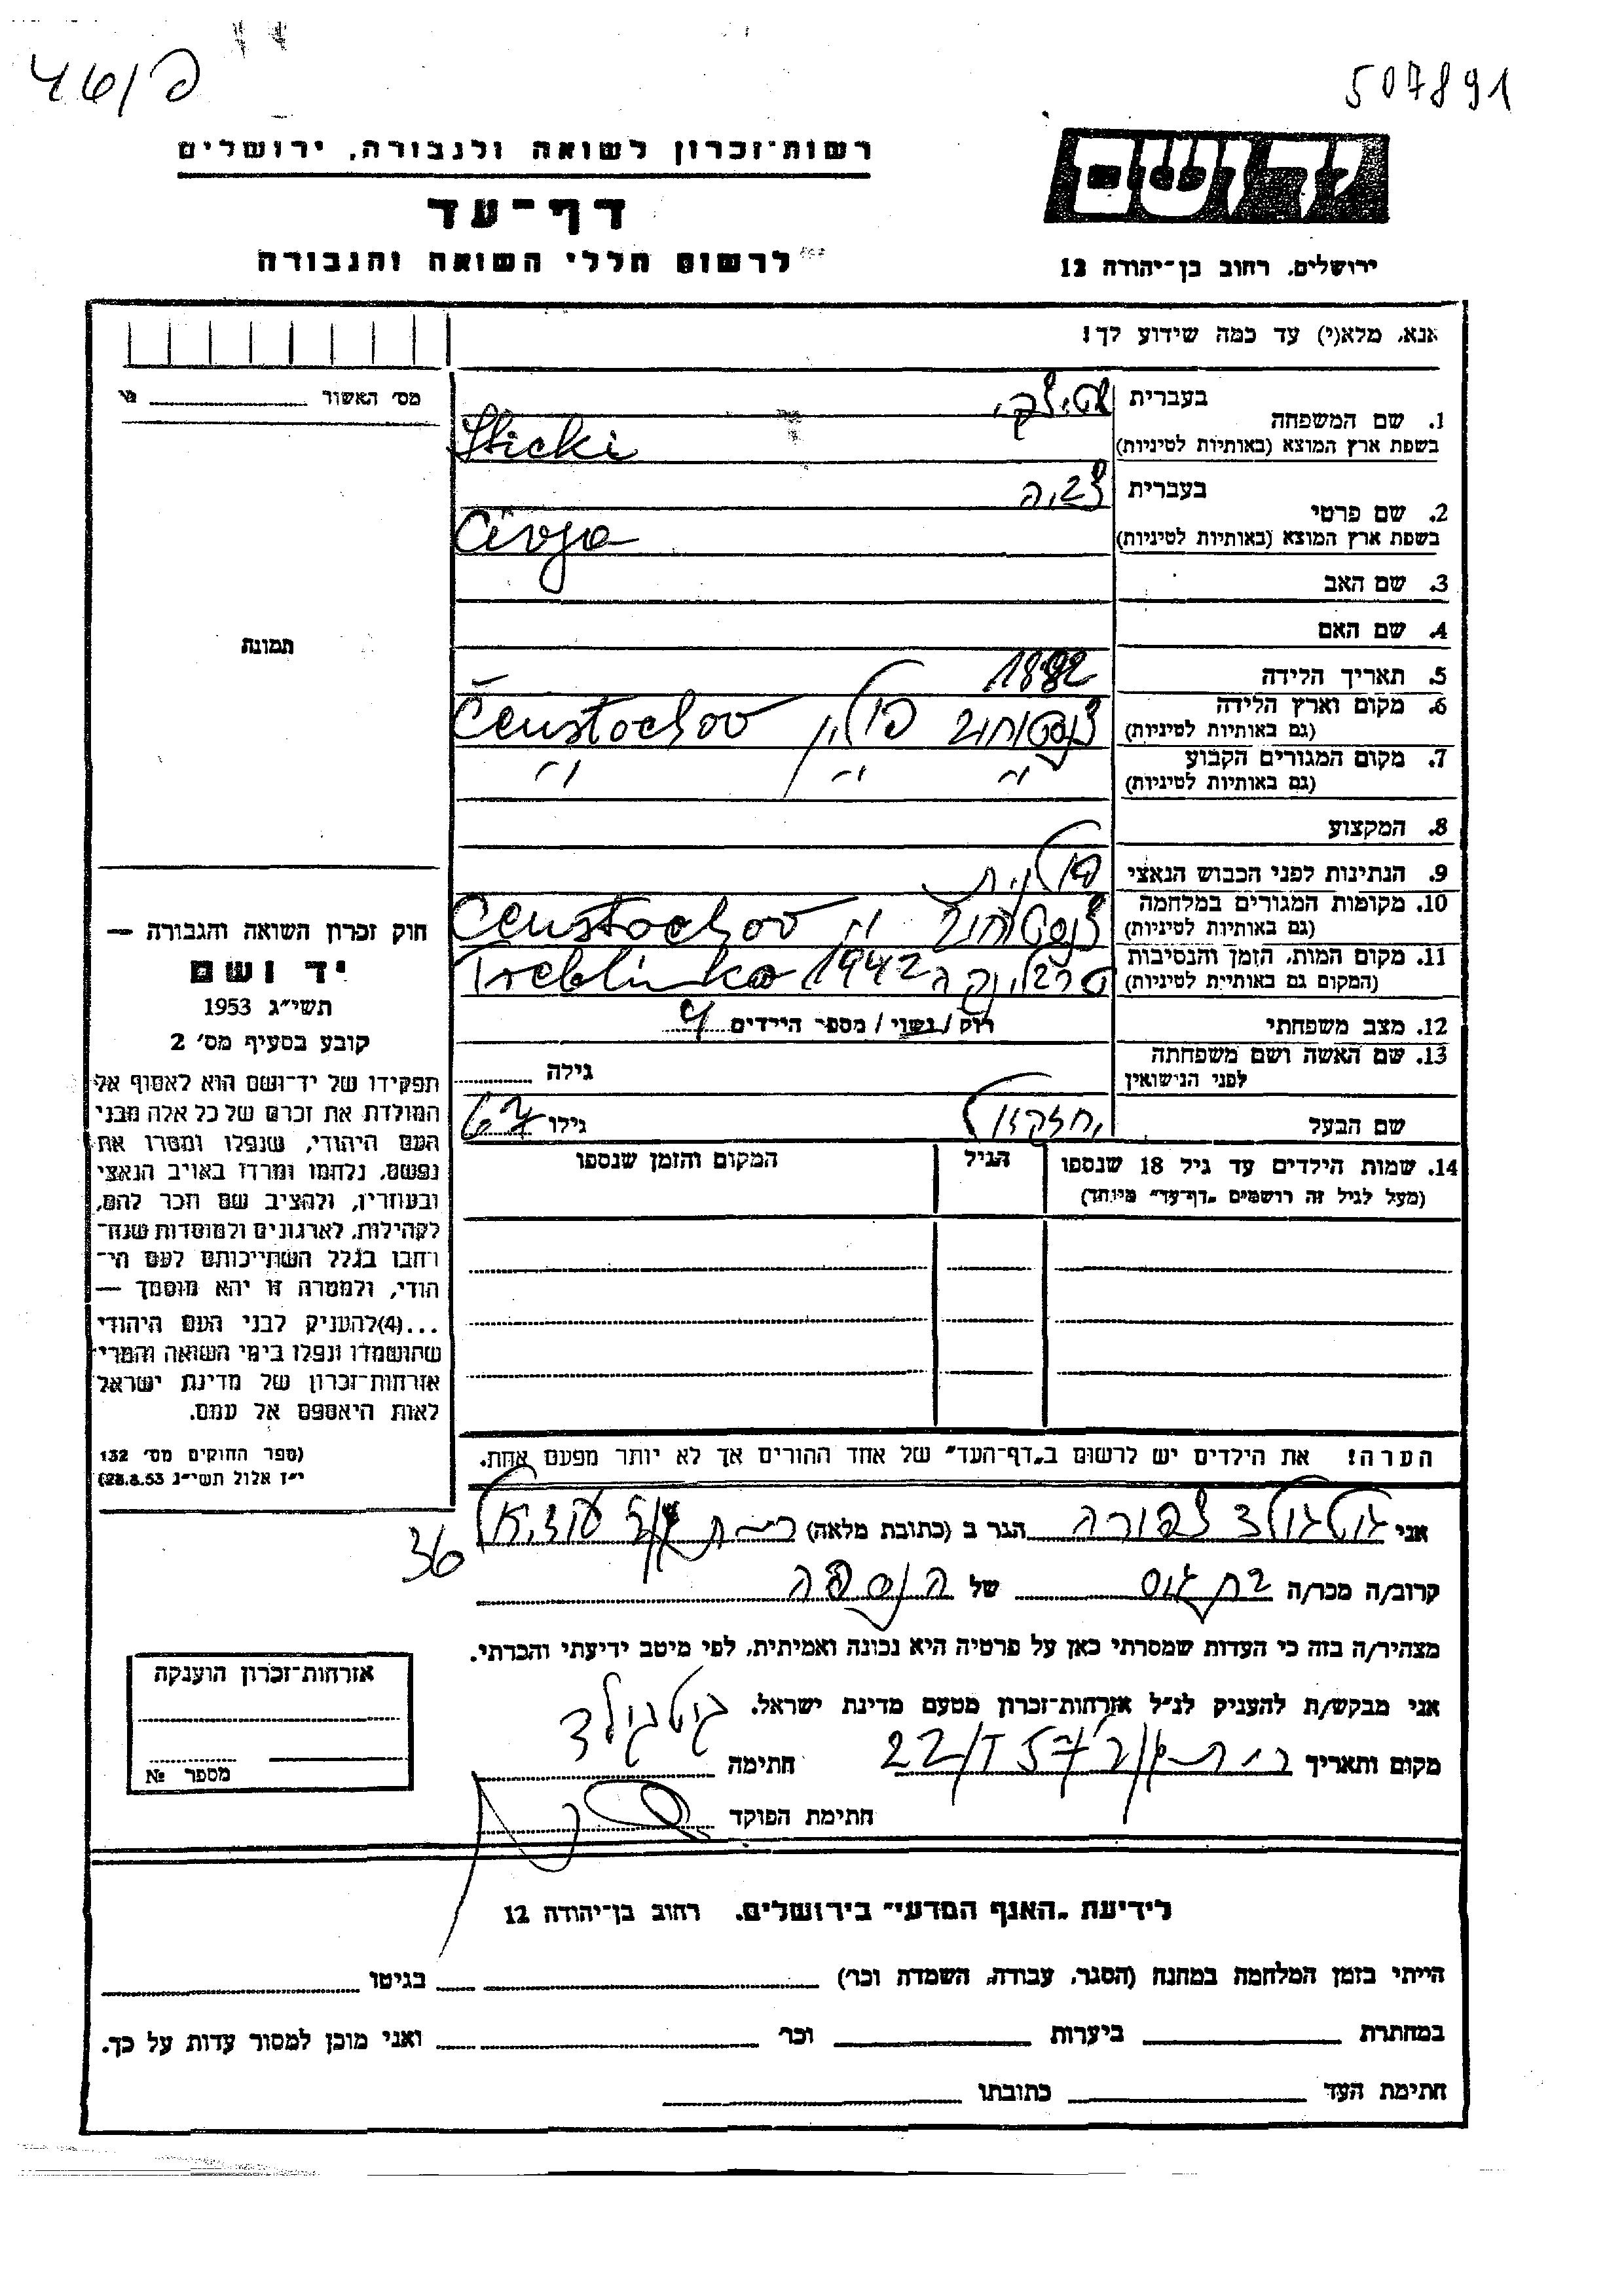 46/פ
507891
רשות-זכרון לשואה ולגבורה, ירושלים
דף-עד
לרשום חללי השואה והגבורה
יד ושם
ירושלים, רחוב בן-יהודה 12
אנא, מלא(י) עד כמה שידוע לך!
מס' האשור
1. שם המשפחה בעברית
בשפת ארץ המוצא (באותיות לטיניות)
2. שם פרטי בעברית צביה
בשפת ארץ המוצא (באותיות לטיניות) Civja
3. שם האב
4. שם האם
5. תאריך הלידה 1882
6. מקום וארץ הלידה צ'נסטוחוב פולין Čenstochov
(גם באותיות לטיניות)
7. מקום המגורים הקבוע -"- -"- -"-
(גם באותיות לטיניות)
8. המקצוע
9. הנתינות לפני הכבוש הנאצי פולנית
10. מקומות המגורים במלחמה צ'נסטוחוב -"- Čenstochov
(גם באותיות לטיניות)
11. מקום המות, הזמן והנסיבות טרבלינקה 1942 Treblinka
(המקום גם באותיות לטיניות)
12. מצב משפחתי רוק/נשוי/מספר הילדים 4
13. שם האשה ושם משפחתה לפני הנישואין גילה
שם הבעל יחזקאל גילו 67
14. שמות הילדים עד גיל 18 שנספו הגיל המקום והזמן שנספו
(מעל לגיל זה רושמים "דף-עד" מיוחד)
הערה! את הילדים יש לרשום ב"דף-העד" של אחד ההורים אך לא יותר מפעם אחת.
תמונת
חוק זכרון השואה והגבורה —
יד ושם
תשי"ג 1953
קובע בסעיף מס' 2
תפקידו של יד-ושם הוא לאסוף אל
המולדת את זכרם של כל אלה מבני
העם היהודי, שנפלו ומסרו את
נפשם, נלחמו ומרדו באויב הנאצי
ובעוזריו, ולהציב שם וזכר להם,
לקהילות, לארגונים ולמוסדות שנח-
רחבו בגלל השתייכותם לעם הי-
הודי, ולמטרה זו יהא מוסמך —
...(4)להעניק לבני העם היהודי
שהושמדו ונפלו בימי השואה והמרי
אזרחות-זכרון של מדינת ישראל
לאות היאספם אל עמם.
(ספר החוקים מס' 132
י"ז אלול תשי"ג 28.8.53)
אני גוטגולד צפורה הגר ב (כתובת מלאה) רמת גן עוזיאל
36
קרוב/ה מכר/ה של הנספה
מצהיר/ה בזה כי העדות שמסרתי כאן על פרטיה היא נכונה ואמיתית, לפי מיטב ידיעתי והכרתי.
אני מבקש/ת להעניק לנ"ל אזרחות-זכרון מטעם מדינת ישראל.
מקום ותאריך חתימה גוטגולד
חתימת הפוקד
אזרחות-זכרון הוענקה
מספר №
לידיעת "האגף המדעי" בירושלים, רחוב בן-יהודה 12
הייתי בזמן המלחמה במחנה (הסגר, עבודה, השמדה וכו') בגיטו
במחתרת ביערות וכו' ואני מוכן למסור עדות על כך.
חתימת העד כתובתו